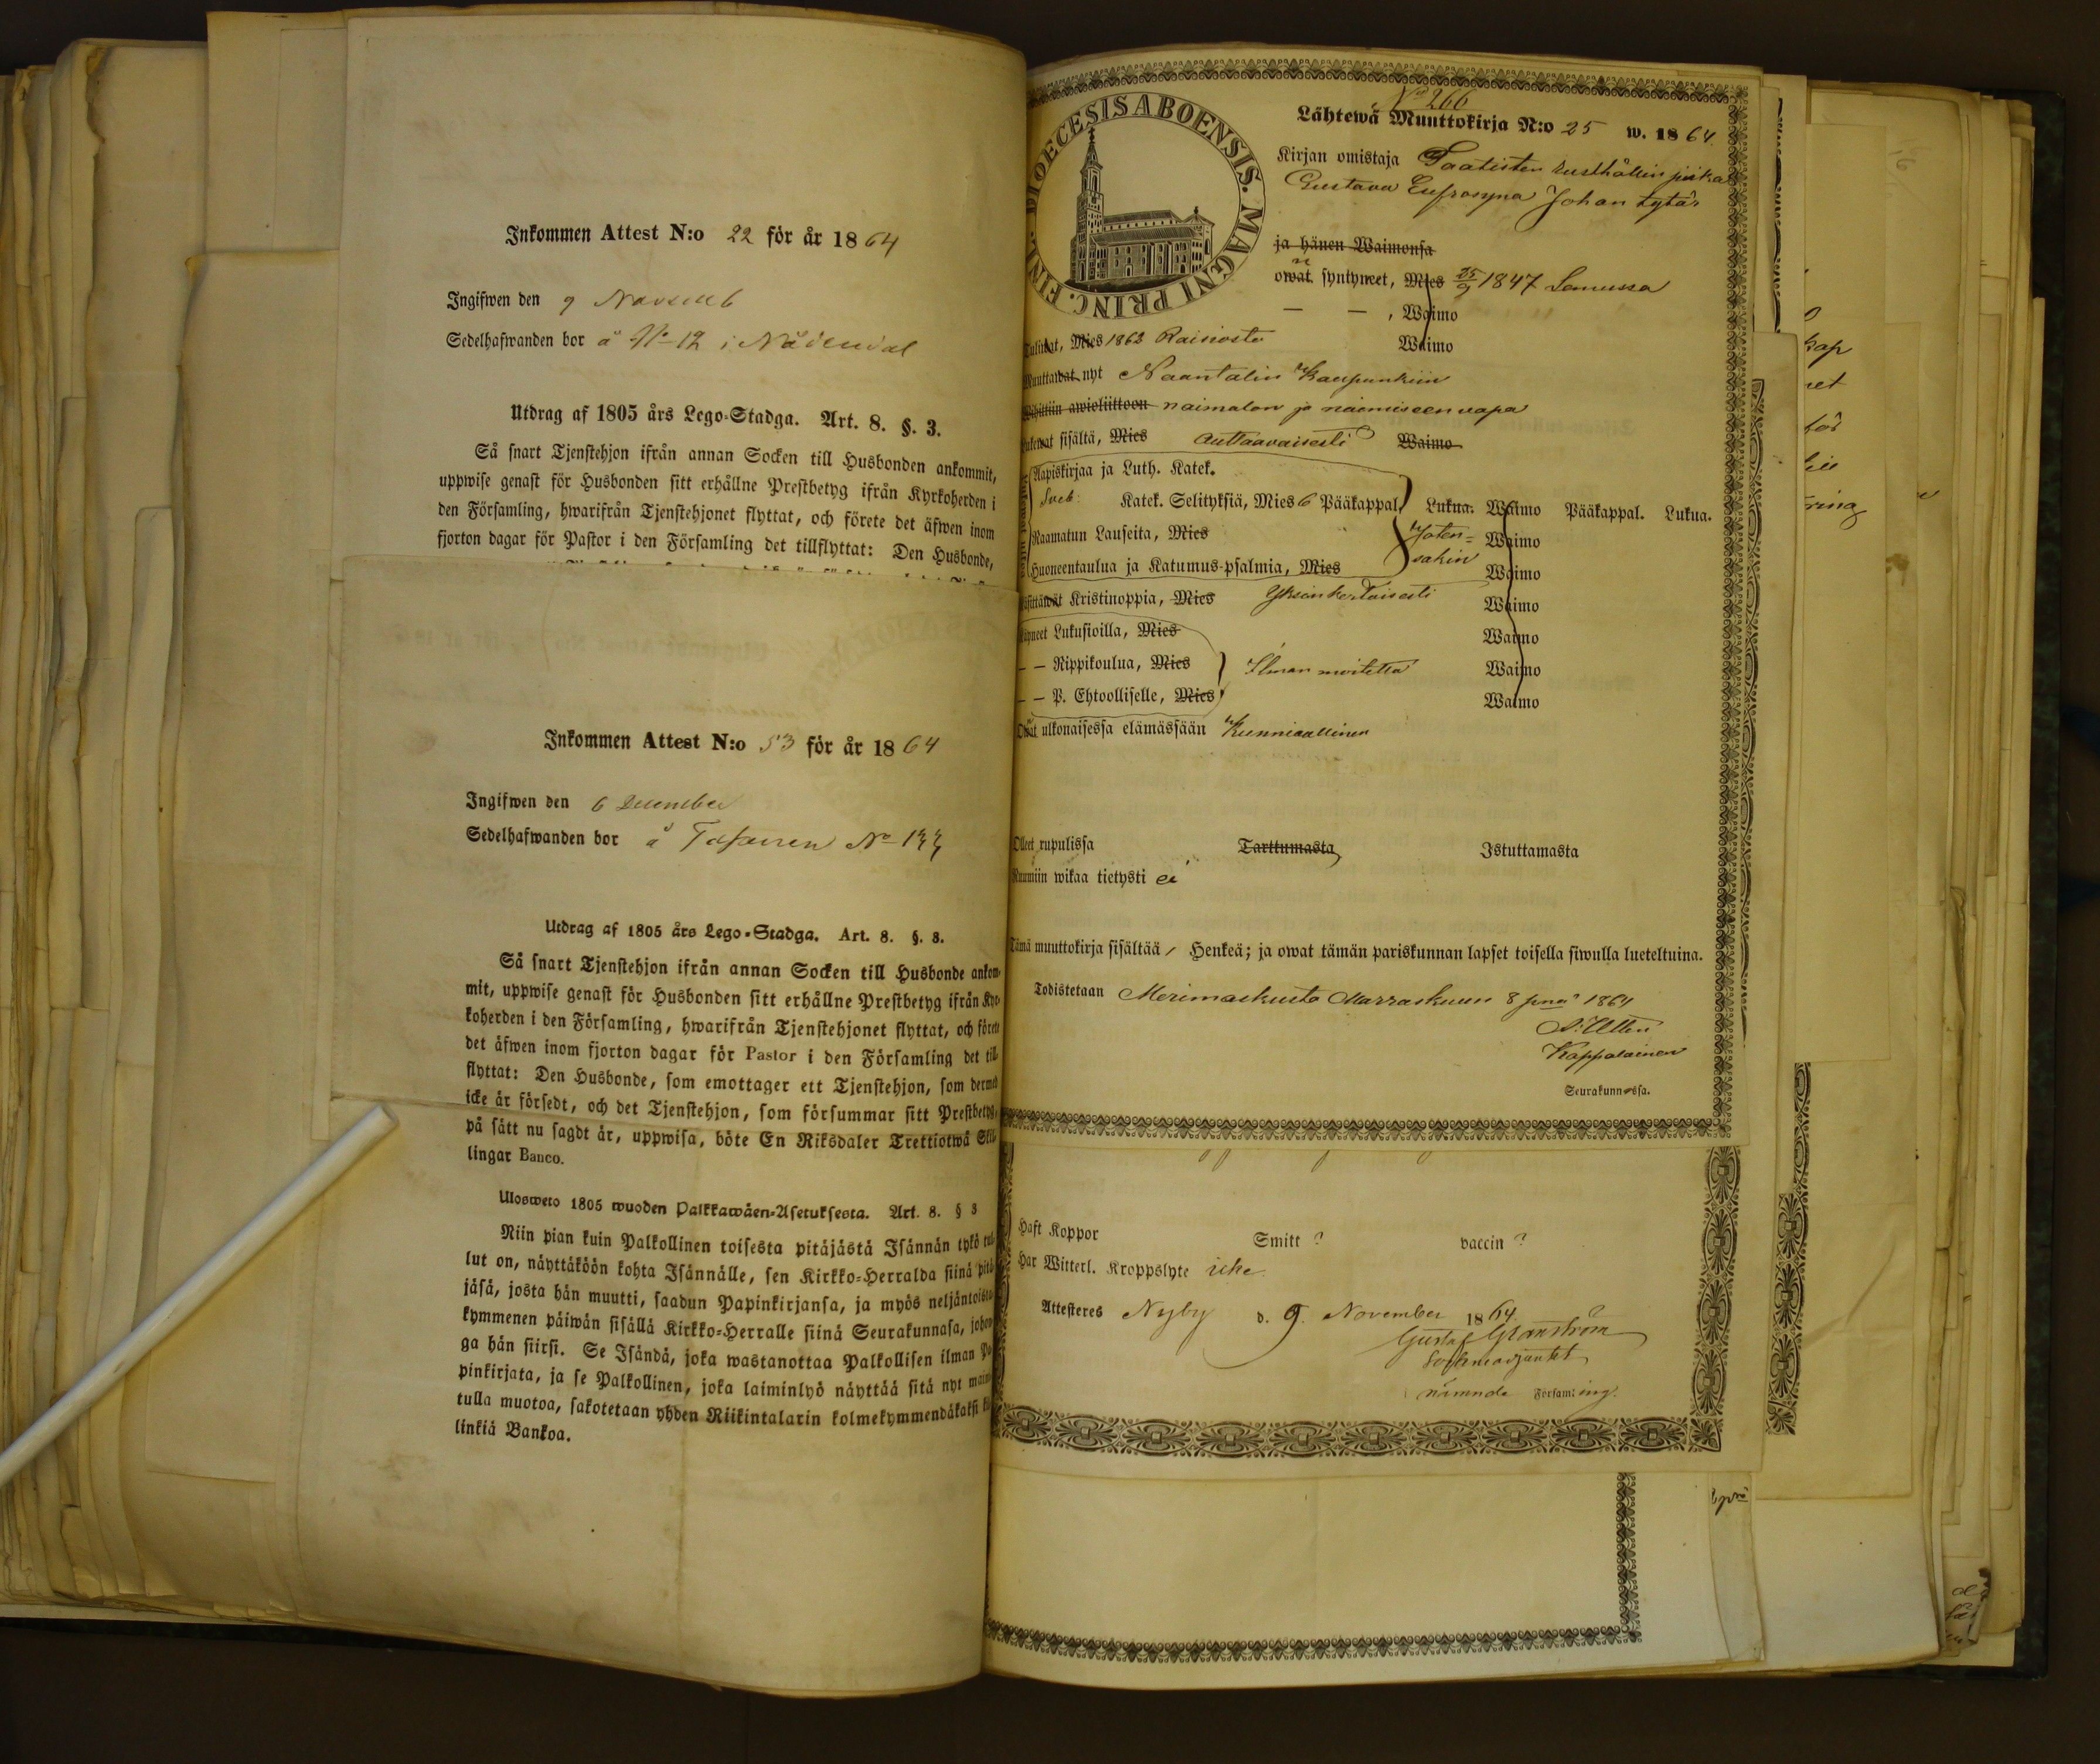 Inkommen Attest N:o 22 för år 1864
Ingifwen den 9 Novemb
Sedelhafwanden bor å No 12 i Nådendal
Utdrag af 1805 års Lego-Stadga. Art. 8. §. 3.
Så snart Tjenstehjon ifrån annan Socken till Husbonden ankommit,
uppwise genast för Husbonden sitt erhållne Prestbetyg ifrån Kyrkoherden i
den Församling, hwarifrån Tjenstehjonet flyttat, och förete det äfwen inom
fjorton dagar för Pastor i den Församling det tillflyttat: Den Husbonde,
Inkommen Attest N:o 53 för år 1864
Ingifwen den 6 December
Sedelhafwanden bor å No 133
Utdrag af 1805 års Lego-Stadga. Art. 8. §. 3.
Så snart Tjenstehjon ifrån annan Socken till Husbonde ankom-
mit, uppwise genast för Husbonden sitt erhållne Prestbetyg ifrån Kyr-
koherden i den Församling, hwarifrån Tjenstehjonet flyttat, och förete
det äfwen inom fjorton dagar för Pastor i den Församling det till-
flyttat: Den Husbonde, som emottager ett Tjenstehjon, som dermed
icke är försedt, och det Tjenstehjon, som försummar sitt Prestbetyg,
på sätt nu sagdt är, uppwisa, böte En Riksdaler Trettiotwå Skil-
lingar Banco.
Ulosweto 1805 wuoden Palkkawäen-Asetuksesta. Art. 8. § 3
Niin pian kuin Palkollinen toisesta pitäjästä Isännän tykö tul-
lut on, näyttäköön kohta Isännälle, sen Kirkko-Herralda siinä pitä-
jäsä, josta hän muutti, saadun Papinkirjansa, ja myös neljäntoista-
kymmenen päiwän sisällä Kirkko-Herralle siinä Seurakunnasa, johon-
ga hän siirsi. Se Isändä, joka wastanottaa Palkollisen ilman Pa-
pinkirjata, ja se Palkollinen, joka laiminlyö näyttää sitä nyt maini-
tulla muotoa, sakotetaan yhden Riikintalarin kolmekymmendäkaksi kil-
linkiä Bankoa.
DIOECESIS ABOENSIS. MAGNI PRINC. FINL.
No 266
Lähtewä Muuttokirja N:o 25 w. 1864.
Kirjan omistaja rusthållin piika
Gustava Eufrosyna Johan tytär
ja hänen Waimonsa
owat syntyneet, Mies 25/9 1847 Lemussa
— — , Waimo
Tulivat, Mies 1863 Raisiosta Waimo
Muuttawat nyt Naantalin Kaupunkiin
Wihittiin awioliittoon naimaton ja naimiseen vapa
Lukewat sisältä, Mies auttaavaisesti Waimo
Aapiskirjaa ja Luth. Katek.
Sveb: Katek. Selityksiä, Mies 6 Pääkappal. Lukua. Waimo Pääkappal. Lukua.
Raamatun Lauseita, Mies Joten- Waimo
Huoneentaulua ja Katumus-psalmia, Mies sakin Waimo
Käsittäwät Kristinoppia, Mies Yksinkertaisesti Waimo
Käyneet Lukusioilla, Mies Waimo
— — Rippikoulua, Mies Ilman moitetta Waimo
— — P. Ehtoolliselle, Mies Waimo
Owat ulkonaisessa elämässään Kunniaallinen
Olleet rupulissa Tarttumasta Istuttamasta
Ruumiin wikaa tietysti ei
Tämä muuttokirja sisältää 1 Henkeä; ja owat tämän pariskunnan lapset toisella siwulla lueteltuina.
Todistetaan Merimaskusta Marraskuun 8 pnä 1864
Kappalainen
Seurakunnassa.
Haft Koppor Smitt? vaccin?
Har Witterl. Kroppslyte icke
Attesteres Nyby d. 9. November 1864.
Gustaf Granström
Sockneadjunkt
nämnde Församling.